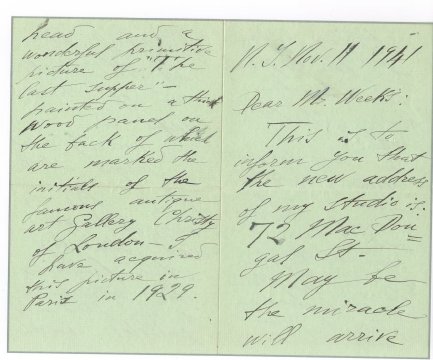 N.Y. Nov. 11 1941
Dear Mr. Weeks:
This is to
inform you that
the new address
of my studio is:
72 Mac Dou=
gal St.
May be
the miracle
will arrive
head and a
wonderful primitive
picture of "The
last supper:-
painted on a thick
wood panel on
the back of which
are marked the
initials of the
famous antique
art Gallery Christy
of London- I
have acquired
this picture in
Paris in 1929.